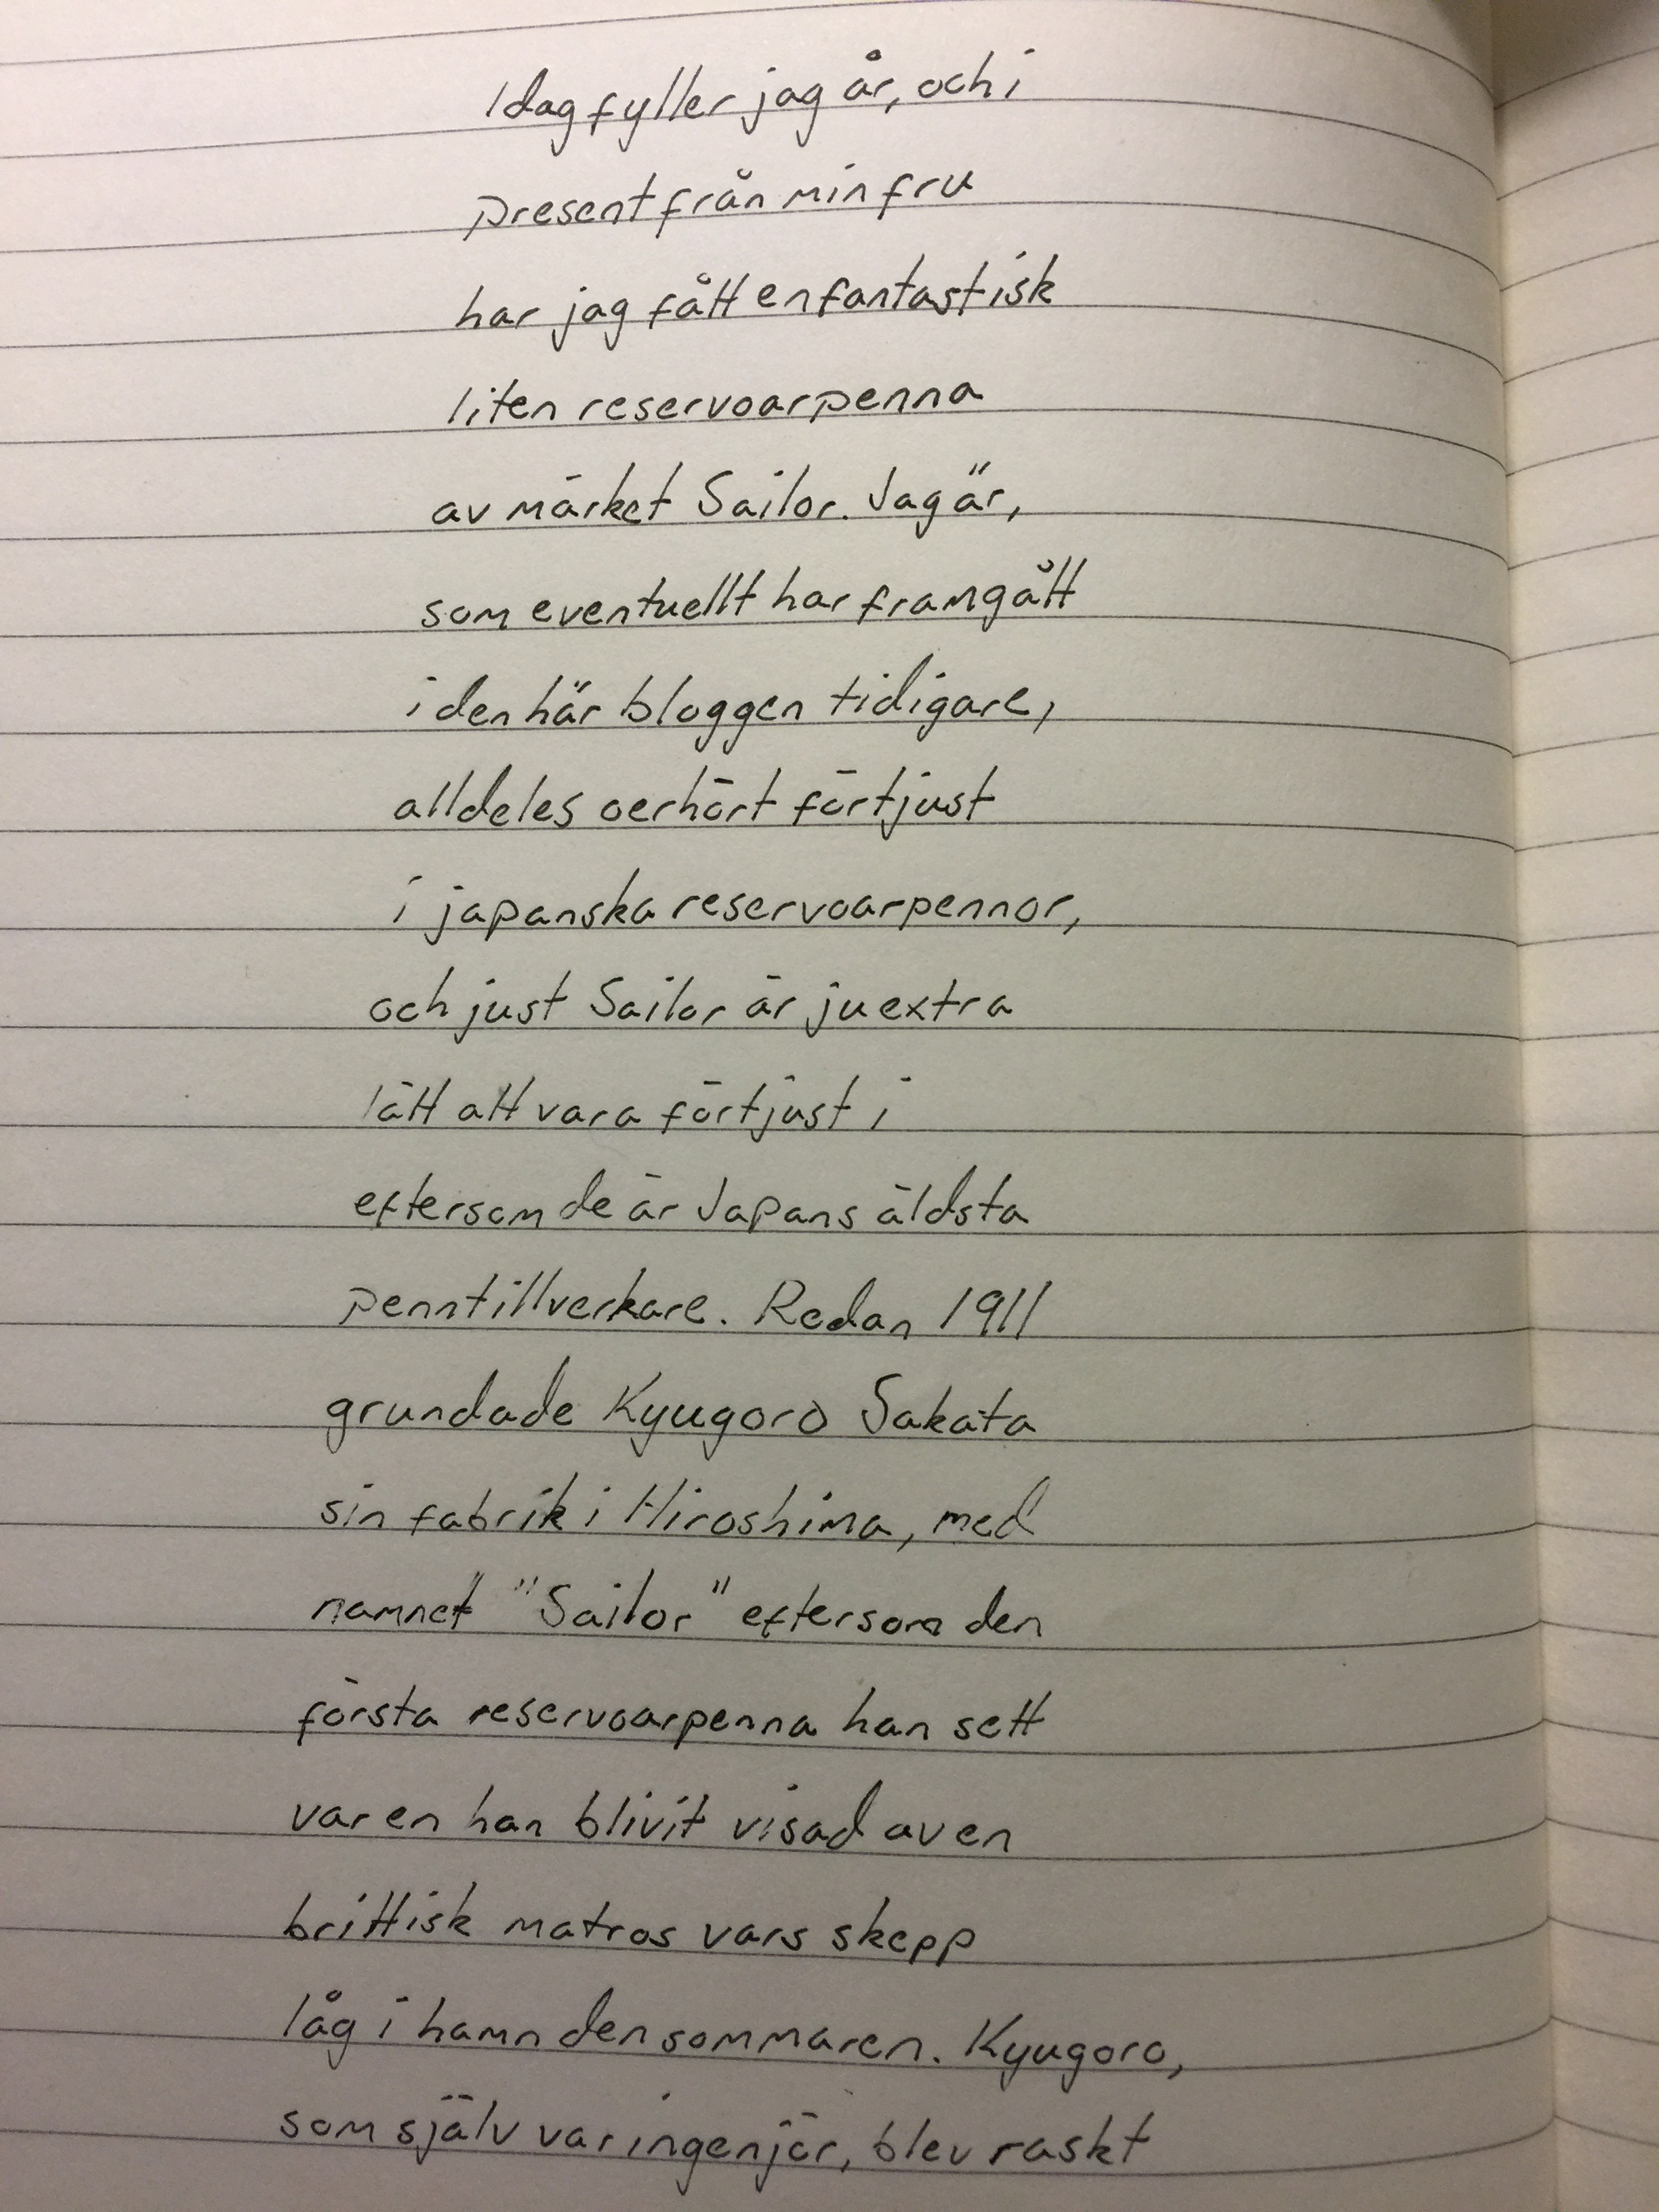 Idag fyller jag år, och i
present från min fru
har jag fått en fantastisk
liten reservoarpenna
av märket Sailor. Jag är,
som eventuellt har framgått
i den här bloggen tidigare,
alldeles oerhört förtjust
i japanska reservoarpennor,
och just Sailor är ju extra
lätt att vara förtjust i
eftersom de är Japans äldsta
penntillverkare. Redan 1911
grundade Kyugoro Sakata
sin fabrik i Hiroshima, med
namnet "Sailor" eftersom den
första reservoarpenna han sett
var en han blivit visad av en
brittisk matros vars skepp
låg i hamn den sommaren. Kyugoro,
som själv var ingenjör, blev raskt